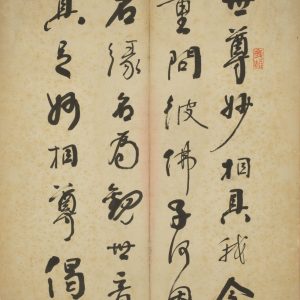 世尊妙相具我今
重問彼佛子何因
名緣名為觀世音
具足妙相尊偈